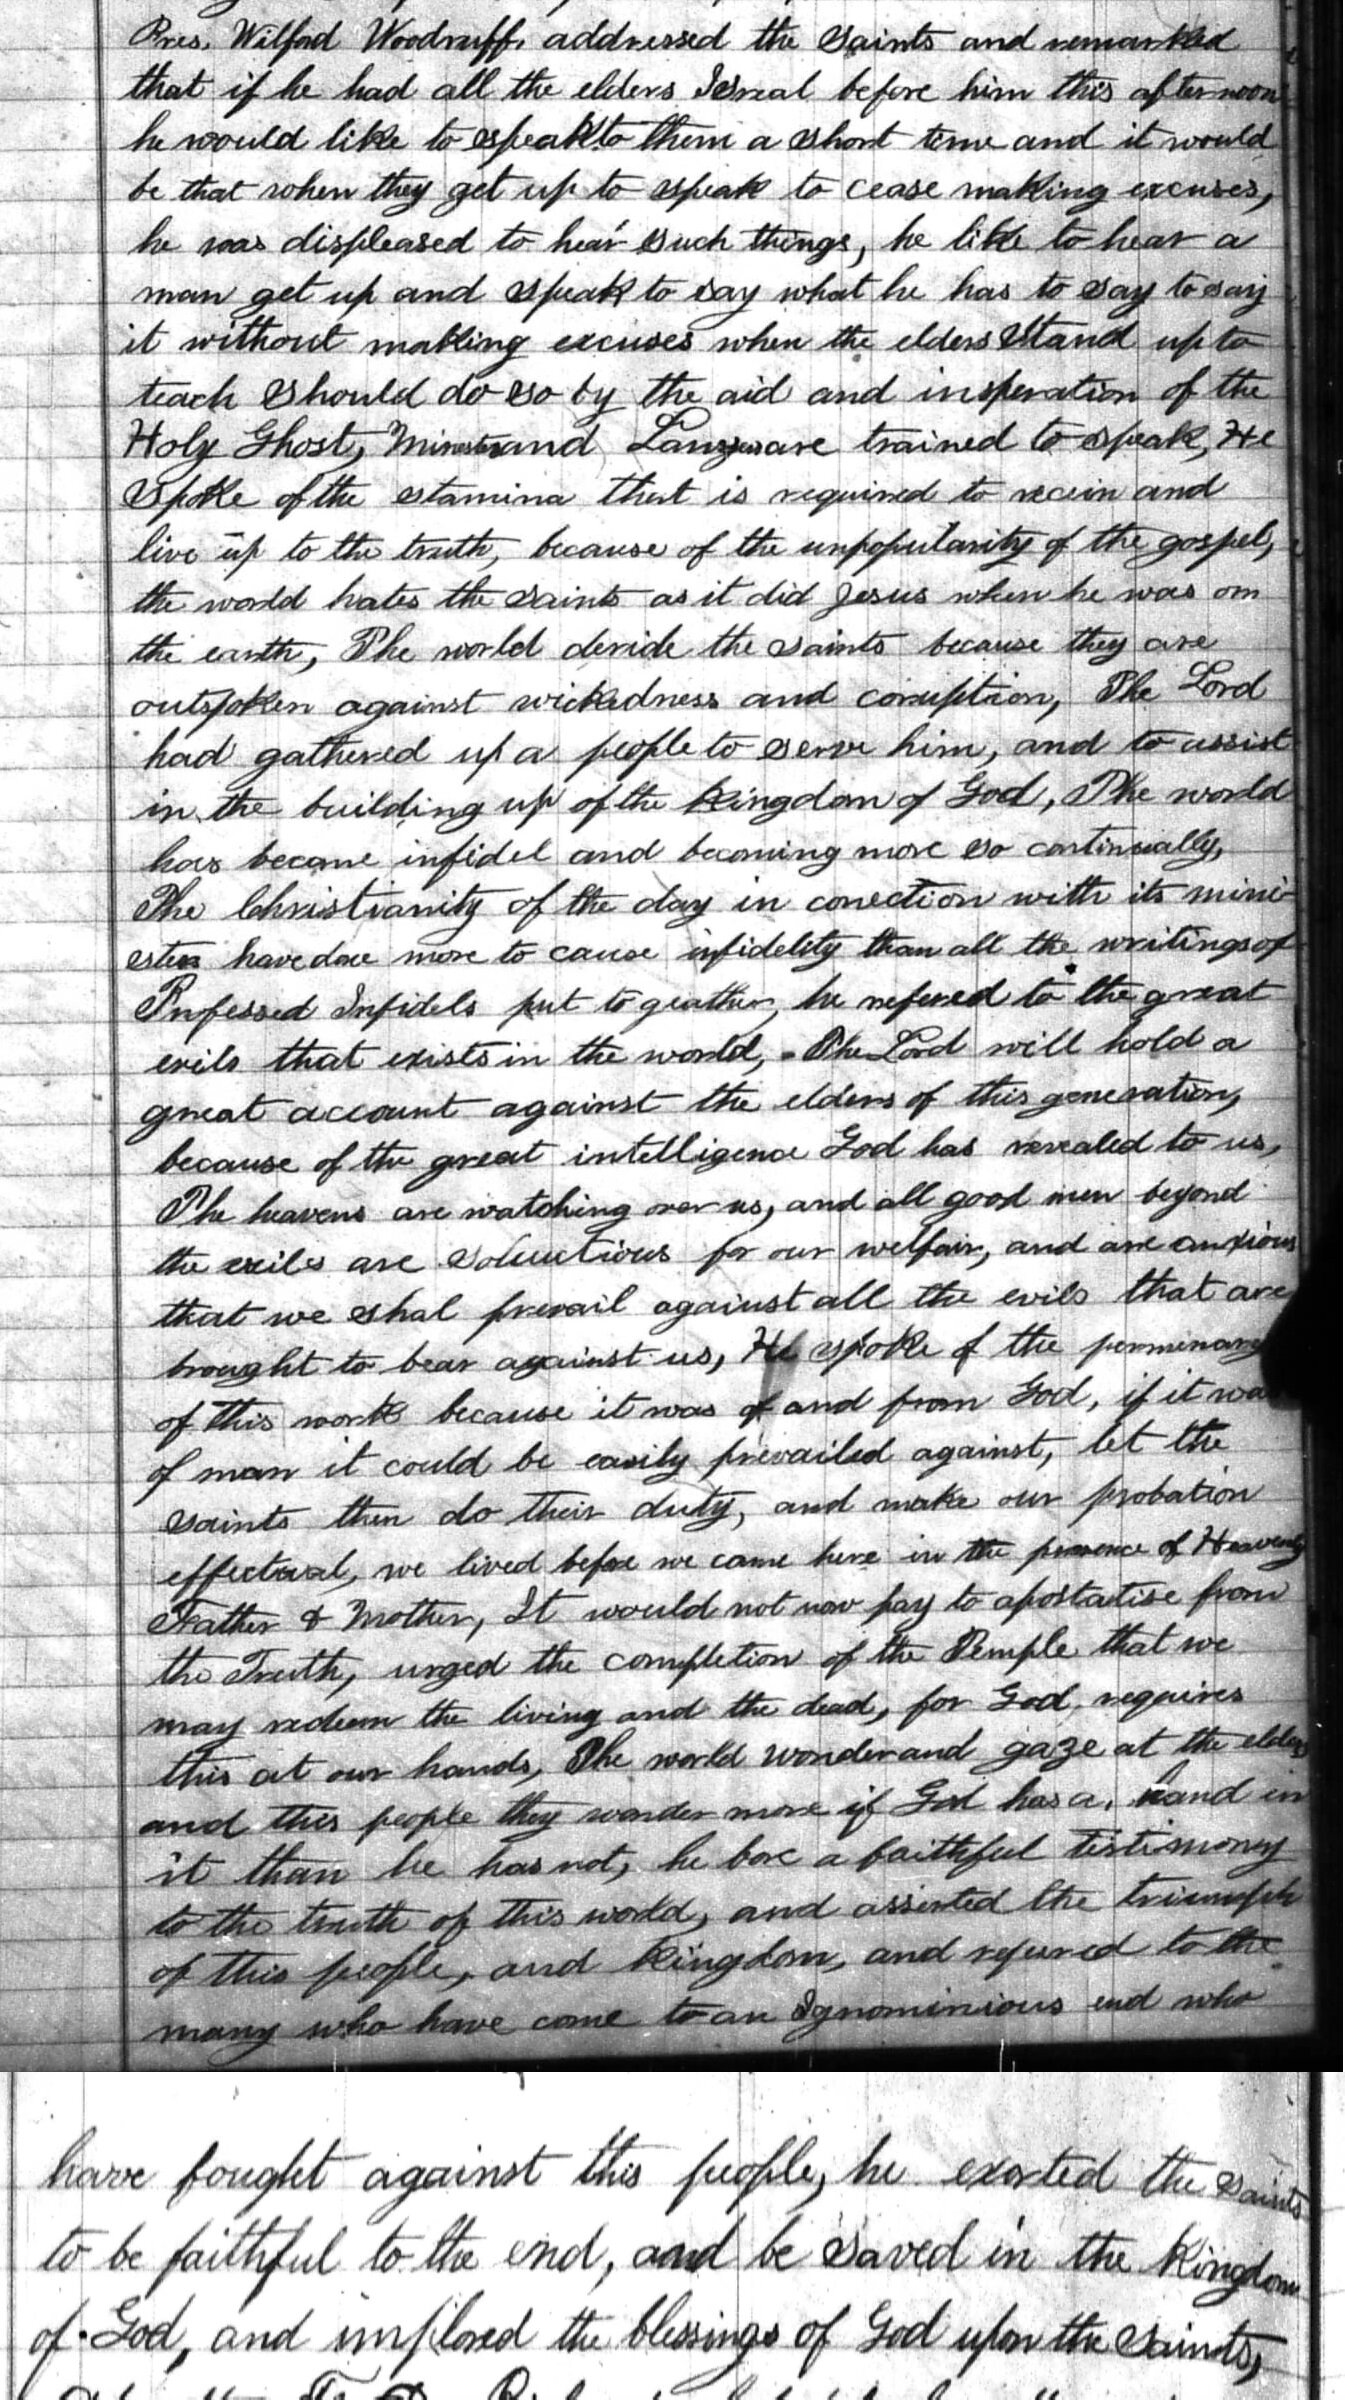 Pres. Wilford Woodruff, addressed the saints and remarked
that if he had all the elders Isreal before him this afternoon
he would like to speak to them a short time and it would
be that when they get up to speak to cease making excuses,
he was displeased to hear such things, he like to hear a
man get up and speak to say what he has to say to say
it without making excuses when the elders stand up to
teach should do so by the aid and insperation of the
Holy Ghost, and are trained to speak, He
Spoke of the stamina that is required to and
live up to the truth, because of the unpopularity of the gospel,
the world hates the saints as it did Jesus when he was on
the earth, The world deride the saints because they are
outspoken against wickedness and coruption, The Lord
had gathered up a people to serve him, and to assist
in the building up of the Kingdom of God, The world
has become infidel and becoming more so continually,
The Christianity of the day in conection with its mini-
esters have done more to cause infidelity than all the writings of
Professed Infidels put to geather, he refered to the great
evils that exists in the world, The Lord will hold a
great account against the elders of this generation,
because of the great intelligence God has revealed to us,
The heavens are watching over us, and all good men beyond
the are for our welfair, and are anxious
that we shal prevail against all the evils that are
brought to bear against us, He spoke of the permenancy
of this work because it was of and from God, if it was
of man it could be easily prevailed against, let the
saints then do their duty, and make our probation
effectual, we lived before we came here in the presence of Heavenly
Father & Mother, It would not now pay to apostatise from
the Truth, urged the completion of the Temple that we
may redeem the living and the dead, for God requires
this at our hands, The world wonder and gaze at the elders
and this people they wonder more if God has a hand in
it than he has not, he bore a faithful testimony
to the truth of this world, and asserted the triumph
of this people, and Kingdom, and refured to the
many who have come to an Ignominious end who
have fought against this people, he exorted the saints
to be faithful to the end, and be saved in the Kingdom
of God, and implored the blessings of God upon the saints,